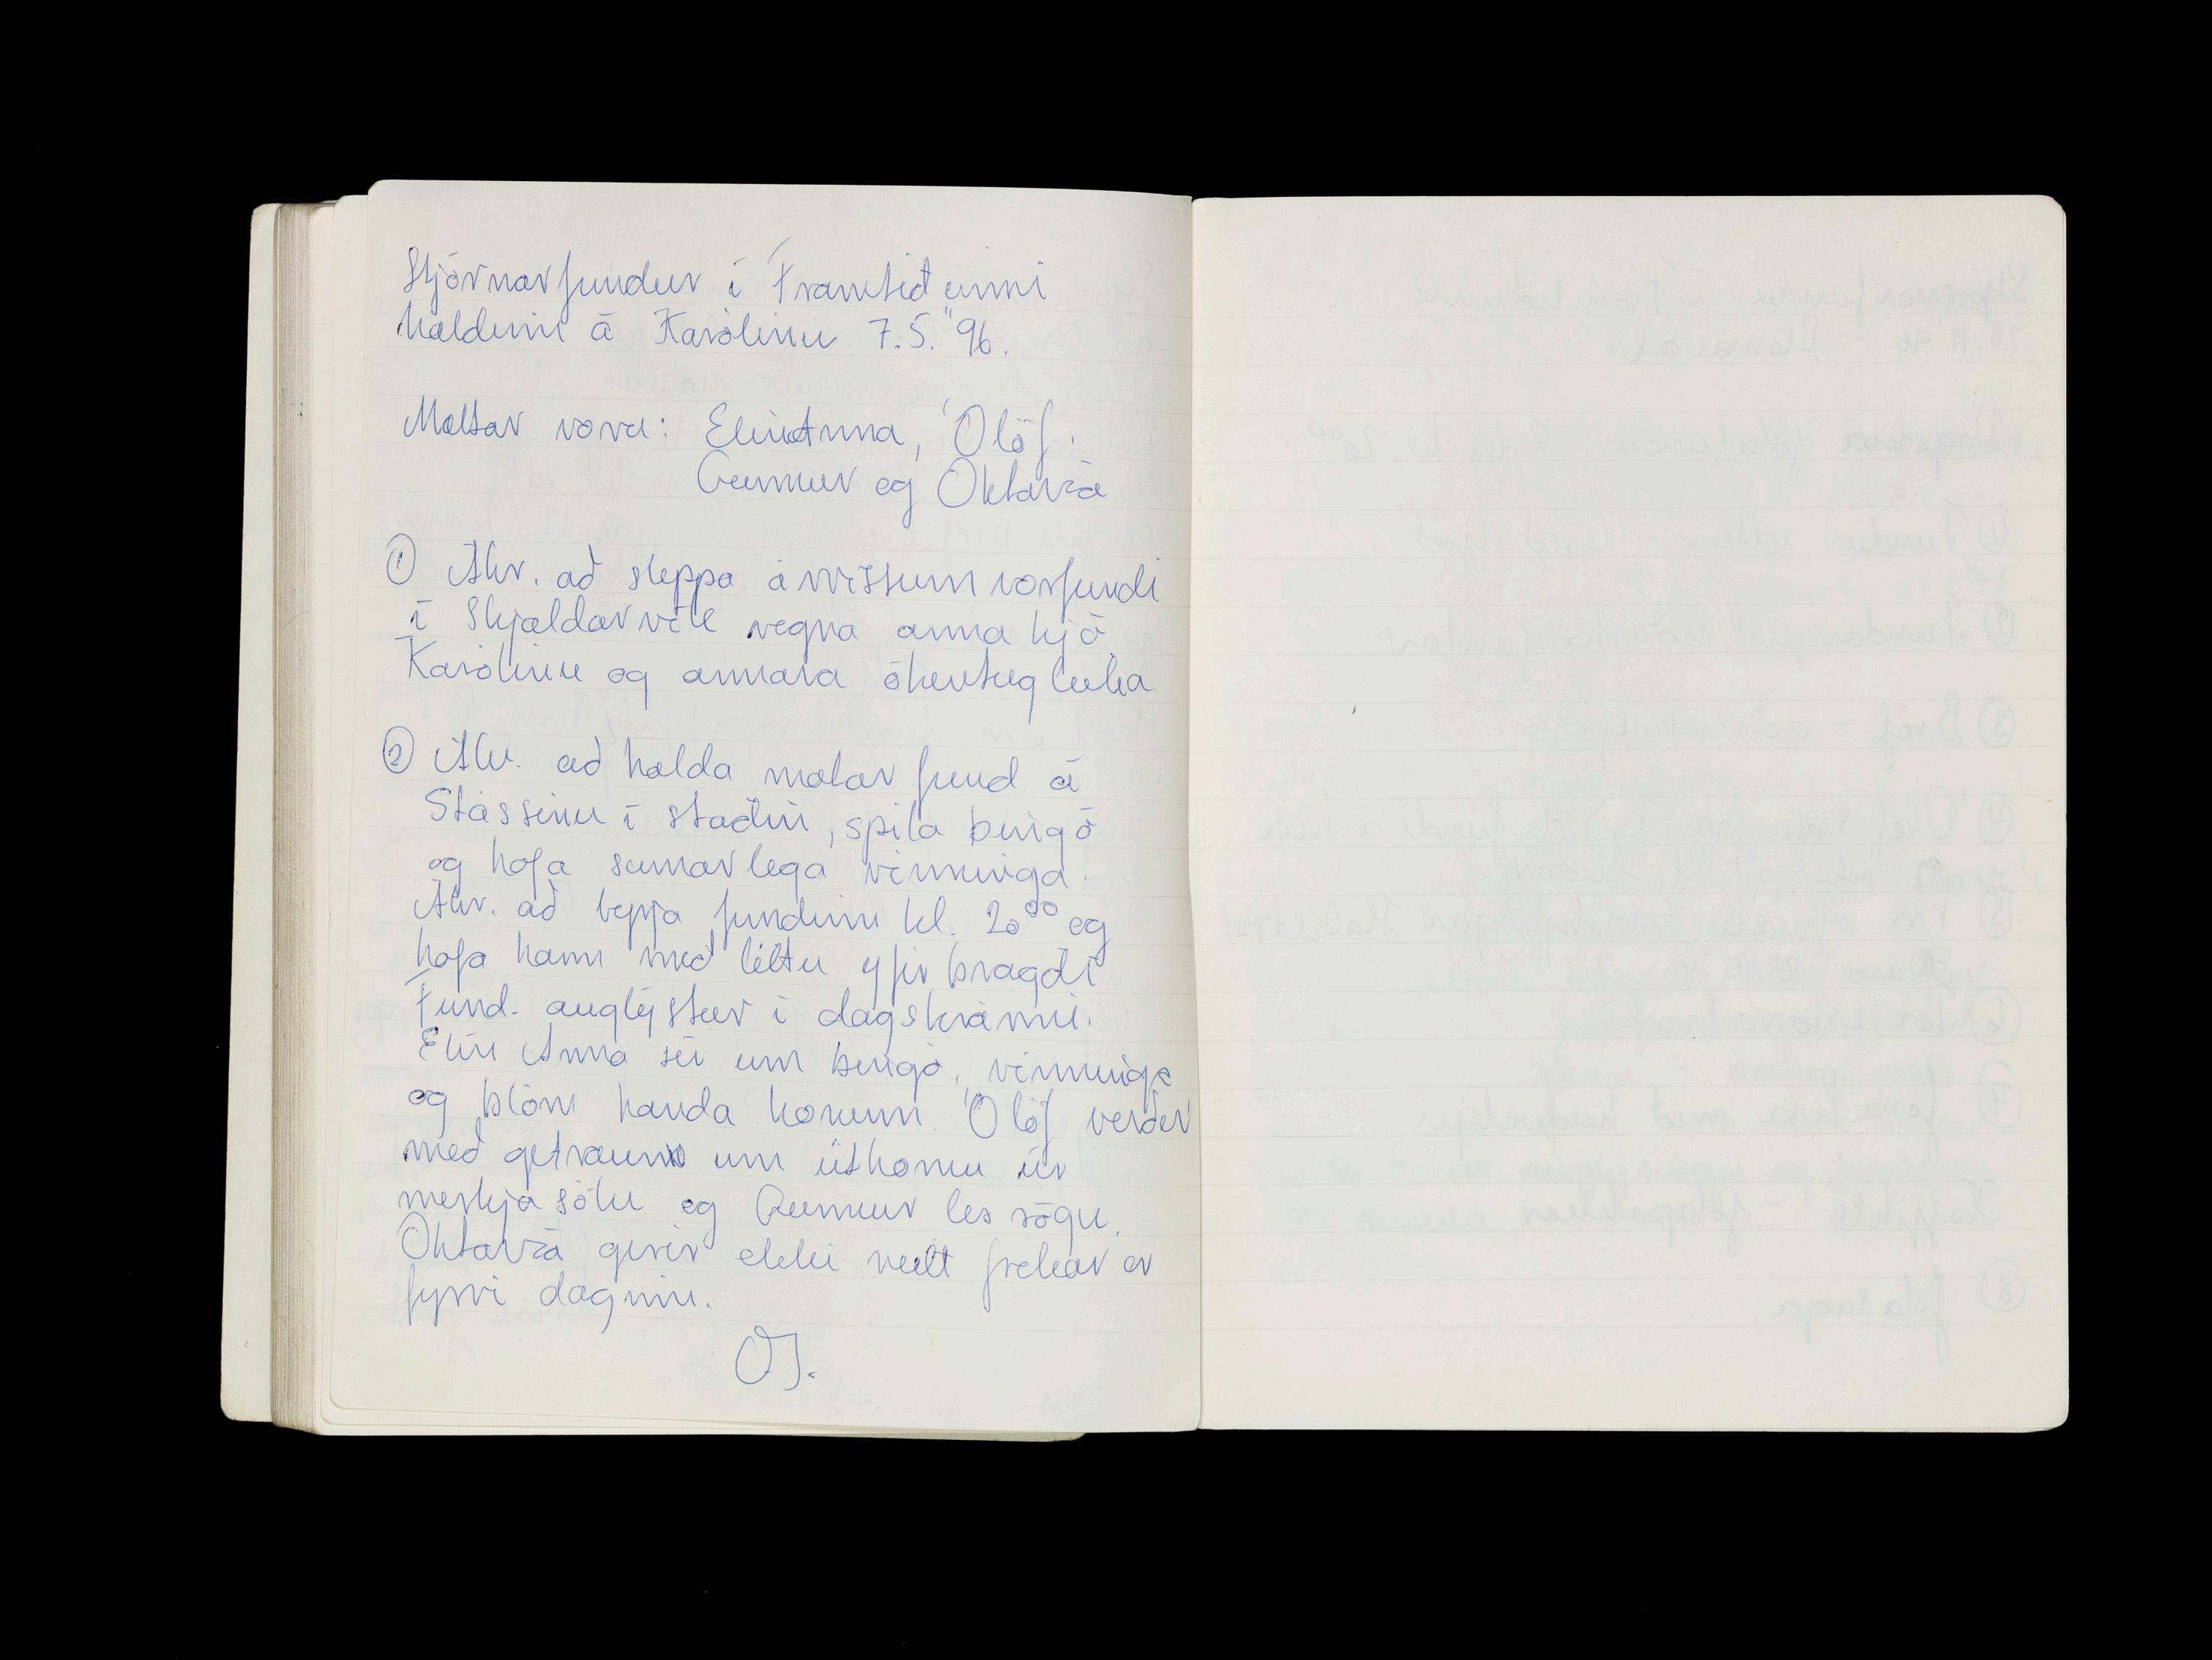 Stjórnarfundur í Framtíðinni
haldinn á Karólínu 7.5. "96.
Mættar voru: Elín Anna, Ólöf.
Gunnur og Oktavía
① Ákv. að sleppa árvissum vorfundi
í Skjaldarvík vegna anna hjá
Karólínu og annara óhentugleika
② Ákv. að halda matarfund á
Stássinu í staðin, spila bingó
og hafa sumarlega vinninga.
Ákv. að byrja fundinn kl. 20⁰⁰ og
hafa hann með léttu yfirbragði
Fund. auglýstur í dagskránni.
Elín Anna sér um bingó, vinninga
og blóm handa konum. Ólöf verður
með getraun um útkomu úr
merkjasölu og Gunnur les sögu.
Oktavía gerir ekki neitt frekar en
fyrri daginn.
OJ.